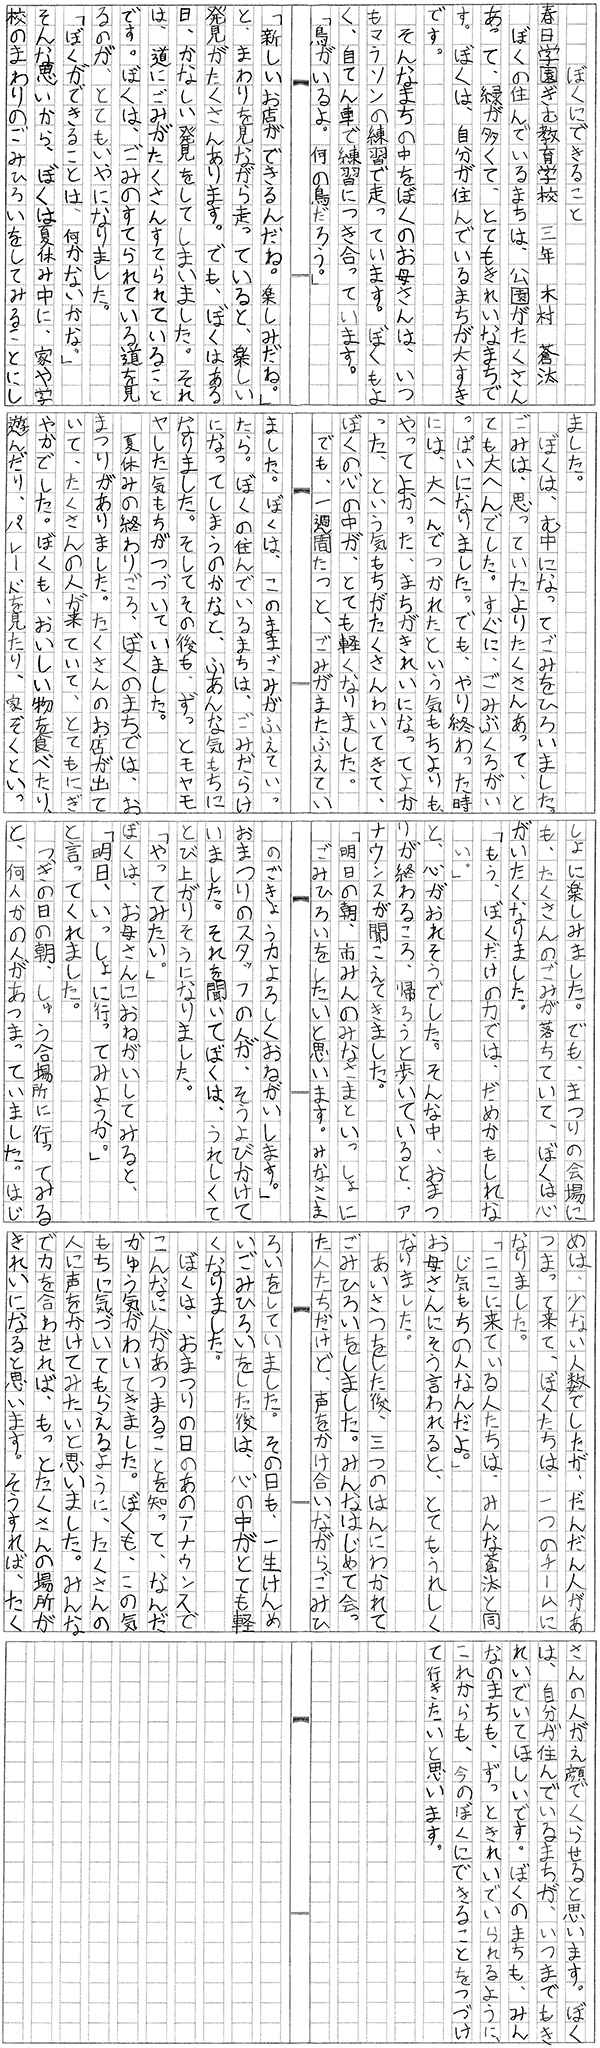 ぼくにできること
春日学園ぎむ教育学校　三年　木村　蒼汰
ぼくの住んでいるまちは、公園がたくさん
あって、緑が多くて、とてもきれいなまちで
す。ぼくは、自分が住んでいるまちが大すき
です。
そんなまちの中をぼくのお母さんは、いつ
もマラソンの練習で走っています。ぼくもよ
く、自てん車で練習につき合っています。
「鳥がいるよ。何の鳥だろう。」
「新しいお店ができるんだね。楽しみだね。」
と、まわりを見ながら走っていると、楽しい
発見がたくさんあります。でも、ぼくはある
日、かなしい発見をしてしまいました。それ
は、道にごみがたくさんすてられていること
です。ぼくは、ごみのすてられている道を見
るのが、とてもいやになりました。
「ぼくができることは、何かないかな。」
そんな思いから、ぼくは夏休み中に、家や学
校のまわりのごみひろいをしてみることにし
ました。
ぼくは、む中になってごみをひろいました。
ごみは、思っていたよりたくさんあって、と
ても大へんでした。すぐに、ごみぶくろがい
っぱいになりました。でも、やり終わった時
には、大へんでつかれたという気もちよりも、
やってよかった、まちがきれいになってよか
った、という気もちがたくさんわいてきて、
ぼくの心の中が、とても軽くなりました。
でも、一週間たつと、ごみがまたふえてい
ました。ぼくは、このままごみがふえていっ
たら。ぼくの住んでいるまちは、ごみだらけ
になってしまうのかなと、ふあんな気もちに
なりました。そしてその後も、ずっとモヤモ
ヤした気もちがつづいていました。
夏休みの終わりごろ、ぼくのまちでは、お
まつりがありました。たくさんのお店が出て
いて、たくさんの人が来ていて、とてもにぎ
やかでした。ぼくも、おいしい物を食べたり、
遊んだり、パレードを見たり、家ぞくといっ
しょに楽しみました。でも、まつりの会場に
も、たくさんのごみが落ちていて、ぼくは心
がいたくなりました。
「もう、ぼくだけの力では、だめかもしれな
い。」
と、心がおれそうでした。そんな中、おまつ
りが終わるころ、帰ろうと歩いていると、ア
ナウンスが聞こえてきました。
「明日の朝、市みんのみなさまといっしょに
ごみひろいをしたいと思います。みなさま
のごきょう力よろしくおねがいします。」
おまつりのスタッフの人が、そうよびかけて
いました。それを聞いてぼくは、うれしくて
とび上がりそうになりました。
「やってみたい。」
ぼくは、お母さんにおねがいしてみると、
「明日、いっしょに行ってみようか。」
と言ってくれました。
つぎの日の朝、しゅう合場所に行ってみる
と、何人かの人があつまっていました。はじ
めは、少ない人数でしたが、だんだん人があ
つまって来て、ぼくたちは、一つのチームに
なりました。
「ここに来ている人たちは、みんな蒼汰と同
じ気もちの人なんだよ。」
お母さんにそう言われると、とてもうれしく
なりました。
あいさつをした後、三つのはんにわかれて
ごみひろいをしました。みんなはじめて会っ
た人たちだけど、声をかけ合いながらごみひ
ろいをしていました。その日も、一生けんめ
いごみひろいをした後は、心の中がとても軽
くなりました。
ぼくは、おまつりの日のあのアナウンスで
こんなに人があつまることを知って、なんだ
かゆう気がわいてきました。ぼくも、この気
もちに気づいてもらえるように、たくさんの
人に声をかけてみたいと思いました。みんな
で力を合わせれば、もっとたくさんの場所が
きれいになると思います。そうすれば、たく
さんの人がえ顔でくらせると思います。ぼく
は、自分が住んでいるまちが、いつまでもき
れいでいてほしいです。ぼくのまちも、みん
なのまちも、ずっときれいでいられるように、
これからも、今のぼくにできることをつづけ
て行きたいと思います。